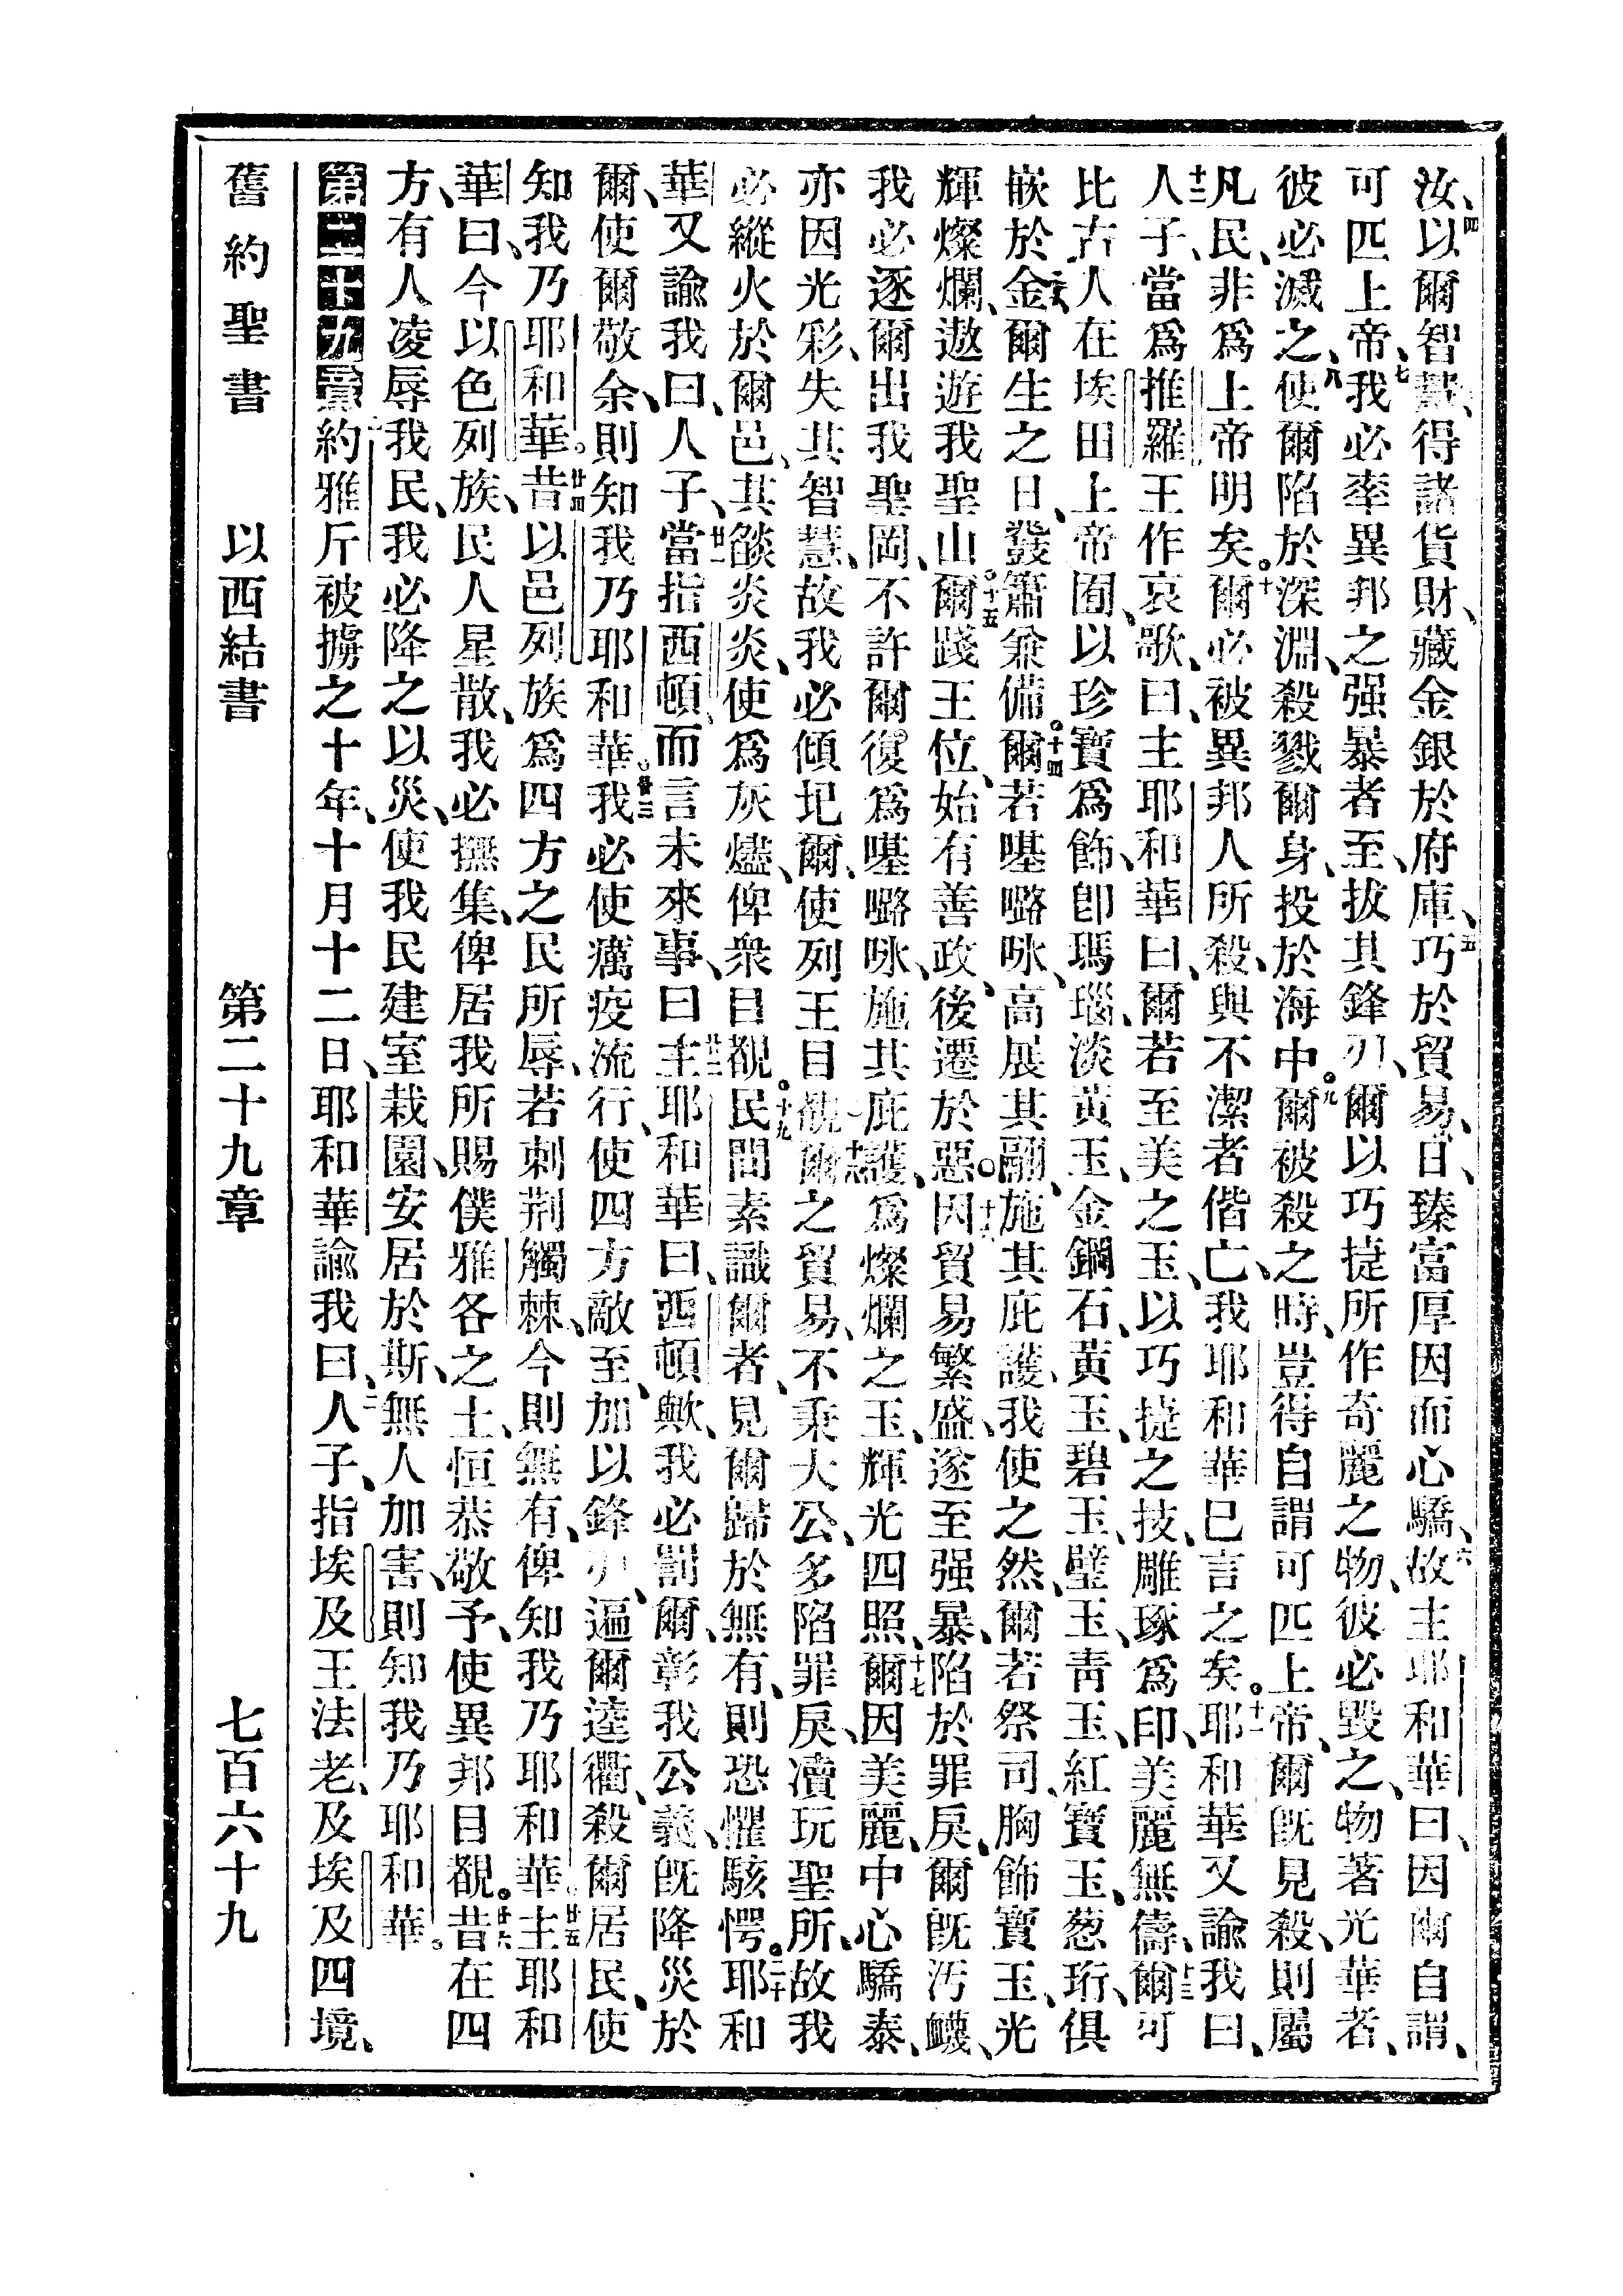 汝、四以爾智慧、得諸貨財、藏金銀於府庫、五巧於貿易、日臻富厚因而心驕、六故主耶和華曰、因爾自謂、
可匹上帝、七我必率異邦之强暴者至、拔其鋒刃、爾以巧㨗所作奇麗之物、彼必毀之、物著光華者、
彼必滅之、八使爾陷於深淵、殺戮爾身、投於海中。九爾被殺之時、豈得自謂可匹上帝、爾旣見殺、則屬
凡民、非爲上帝明矣。十爾必被異邦人所殺、與不潔者偕亡、我耶和華已言之矣。十一耶和華又諭我曰、
十二人子、當爲推羅王作哀歌、曰、主耶和華曰、爾若至美之玉、以巧㨗之技、雕琢爲印、美麗無儔、十三爾可
比古人在埃田上帝囿、以珍寶爲飾、卽瑪瑙、淡黃玉、金鋼石、黃玉、碧玉、璧玉、靑玉、紅寶玉、葱珩、俱
嵌於金、爾生之日、發簫兼備。十四爾若𠼻嚕咏、高展其翮、施其庇護、我使之然、爾若祭司、胸飾寶玉、光
輝燦爛、遨遊我聖山。十五爾踐王位、始有善政、後遷於惡。十六因貿易繁盛、遂至强暴、陷於罪戾、爾旣汚衊、
我必逐爾出我聖岡、不許爾復爲𠼻嚕咏、施其庇護、爲燦爛之玉、輝光四照、十七爾因美麗、中心驕泰、
亦因光彩、失其智慧、故我必傾圮爾、使列王目覩、十八爾之貿易、不秉大公、多陷罪戾、凟玩聖所、故我
必縱火於爾邑、其燄炎炎、使爲灰燼、俾衆目覩。十九民間素識爾者、見爾歸於無有、則恐懼駭愕。二十耶和
華又諭我曰、人子、廿一當指西頓而言未來事、曰、廿二主耶和華曰、西頓歟、我必罰爾、彰我公義、旣降災於
爾、使爾敬余、則知我乃耶和華。廿三我必使癘疫流行、使四方敵至、加以鋒刃、遍爾逵衢、殺爾居民、使
知我乃耶和華。廿四昔以色列族爲四方之民所辱、若刺荆觸棘、今則無有、俾知我乃耶和華。廿五主耶和
華曰、今以色列族、民人星散、我必撫集、俾居我所賜僕雅各之土、恒恭敬予、使異邦目覩。廿六昔在四
方、有人凌辱我民、我必降之以災、使我民建室栽園、安居於斯、無人加害、則知我乃耶和華。
第二十九章 一約雅斤被擄之十年、十月十二日、耶和華諭我曰、二人子、指埃及王法老、及埃及四境、
舊約聖書 以西結書 第二十九章 七百六十九